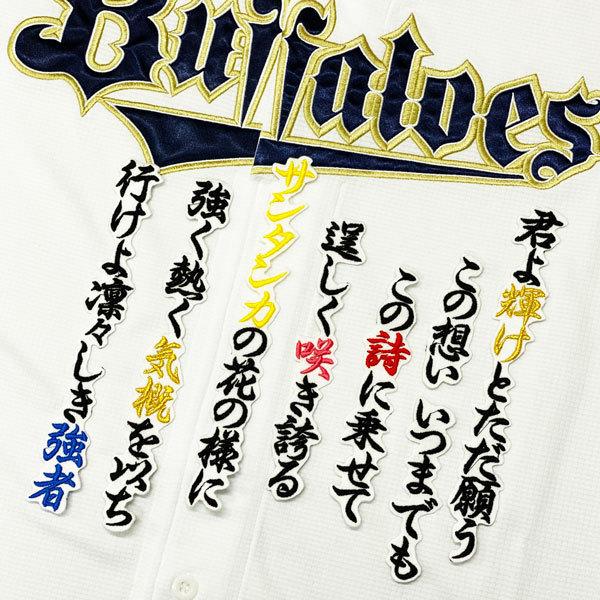 Buffaloes
君よ輝けとただ願う
この想い いつまでも
この詩に乗せて
逞しく咲き誇る
サンタンカの花の様に
強く熱く気概を以ち
行けよ凛々しき強者